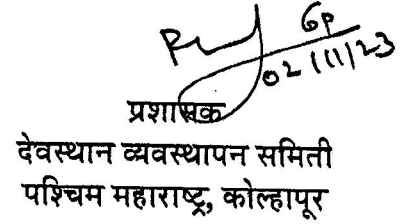 02/11/23
प्रशासक
देवस्थान व्यवस्थापन समिती
पश्चिम महाराष्ट्र, कोल्हापूर